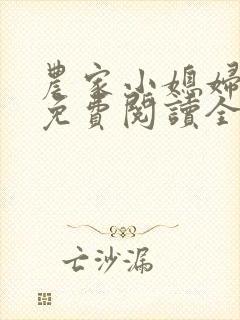 農家小媳婦
免費閱讀全
亡沙漏